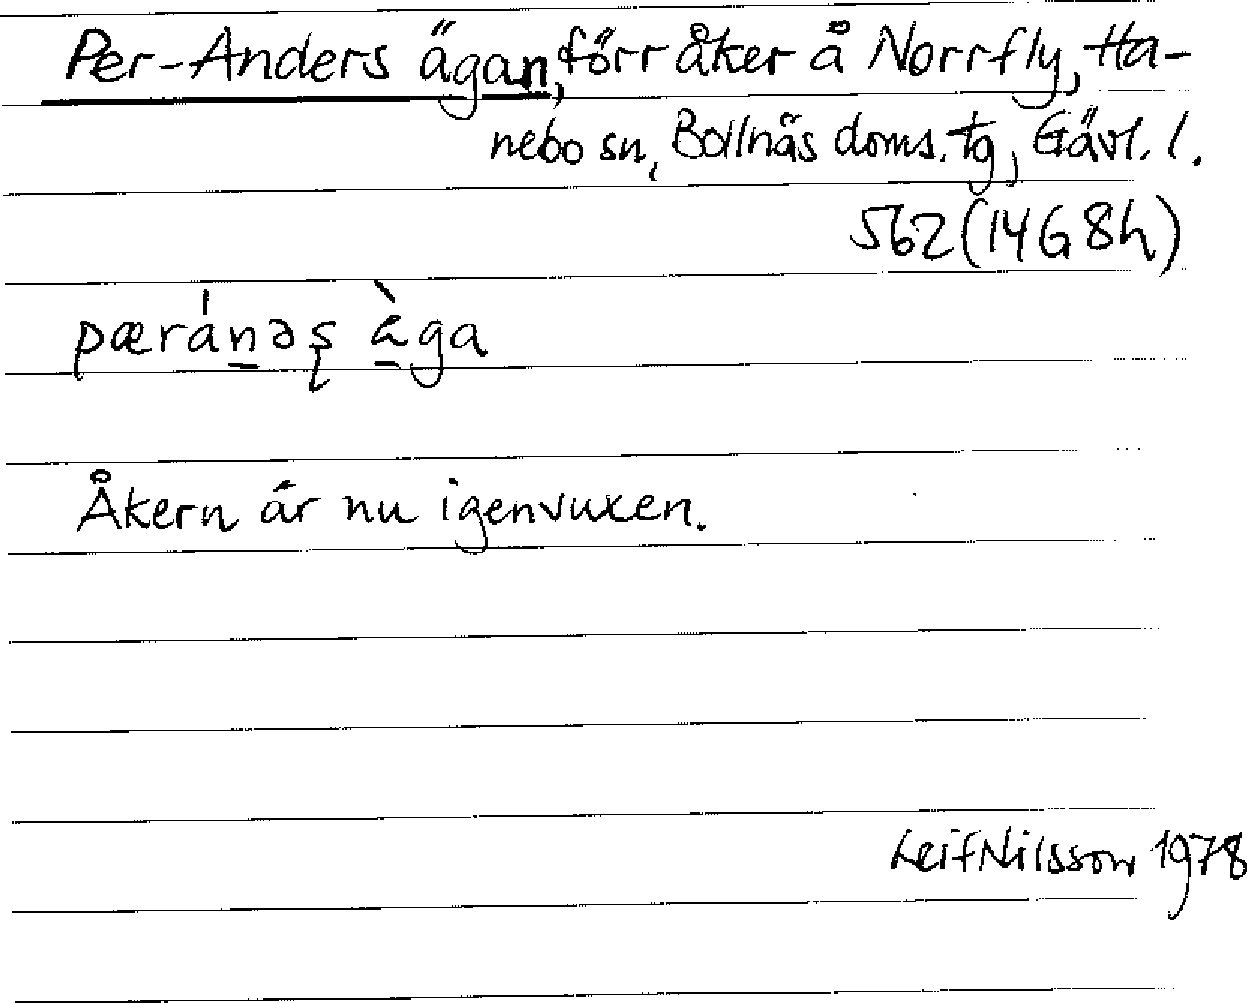 Per-Anders ägan, förr åker å Norrfly, Ha-
nebo sn, Bollnäs doms. tg, Gävl. l.
562 (14G 8h)
pæránəș àga
Åkern är nu igenvuxen.
Leif Nilsson 1978